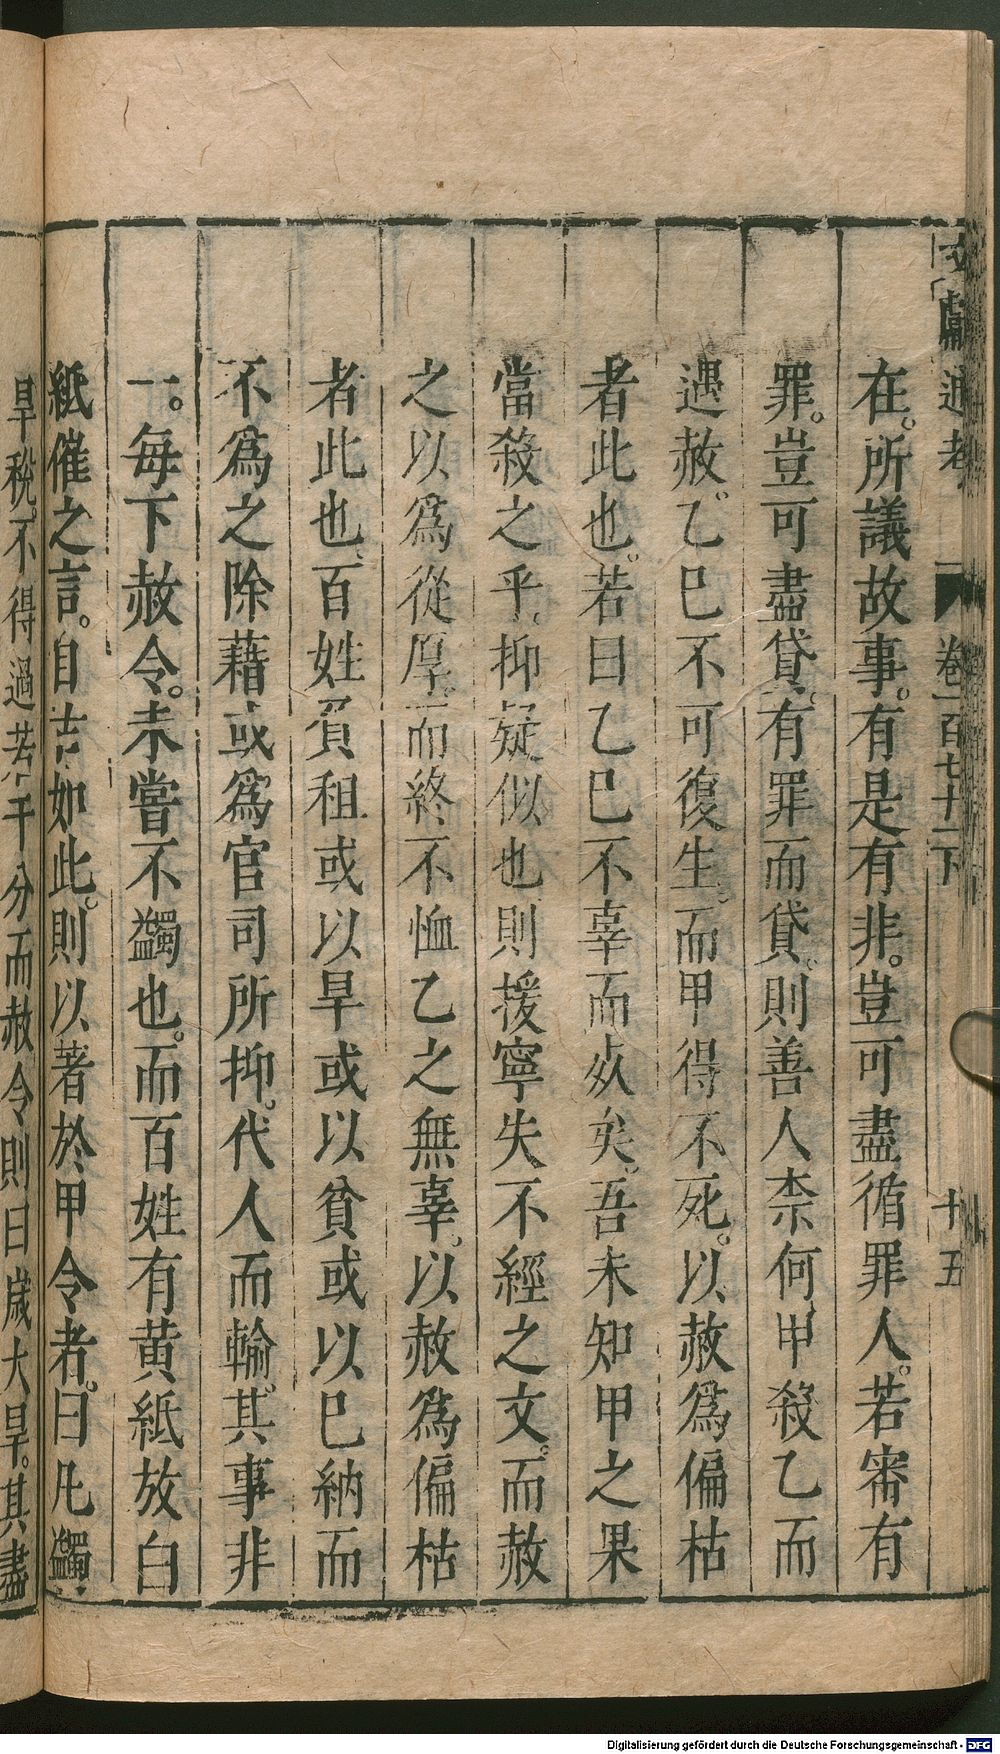 文獻通考 卷一百七十二下 十五
在。所議故事。有是有非。豈可盡循罪人。若審有
罪。豈可盡貸。有罪而貸。則善人柰何。甲殺乙而
遇赦。乙巳不可復生。而甲得不死。以赦為偏枯
者此也。若曰乙巳不辜而死矣。吾未知甲之果
當殺之乎。抑疑似也則援寧失不經之文。而赦
之以為從厚。而終不恤乙之無辜。以赦為偏枯
者此也。百姓負租或以旱或以貧或以巳納而
不為之除藉或為官司所抑。代人而輸。其事非
一。每下赦令。未嘗不蠲也。而百姓有黄紙放白
紙催之言。自古如此。則以著於甲令者。曰凡蠲
旱稅。不得過若干分而赦令則曰歲大旱。其盡
Digitalisierung gefördert durch die Deutsche Forschungsgemeinschaft - DFG